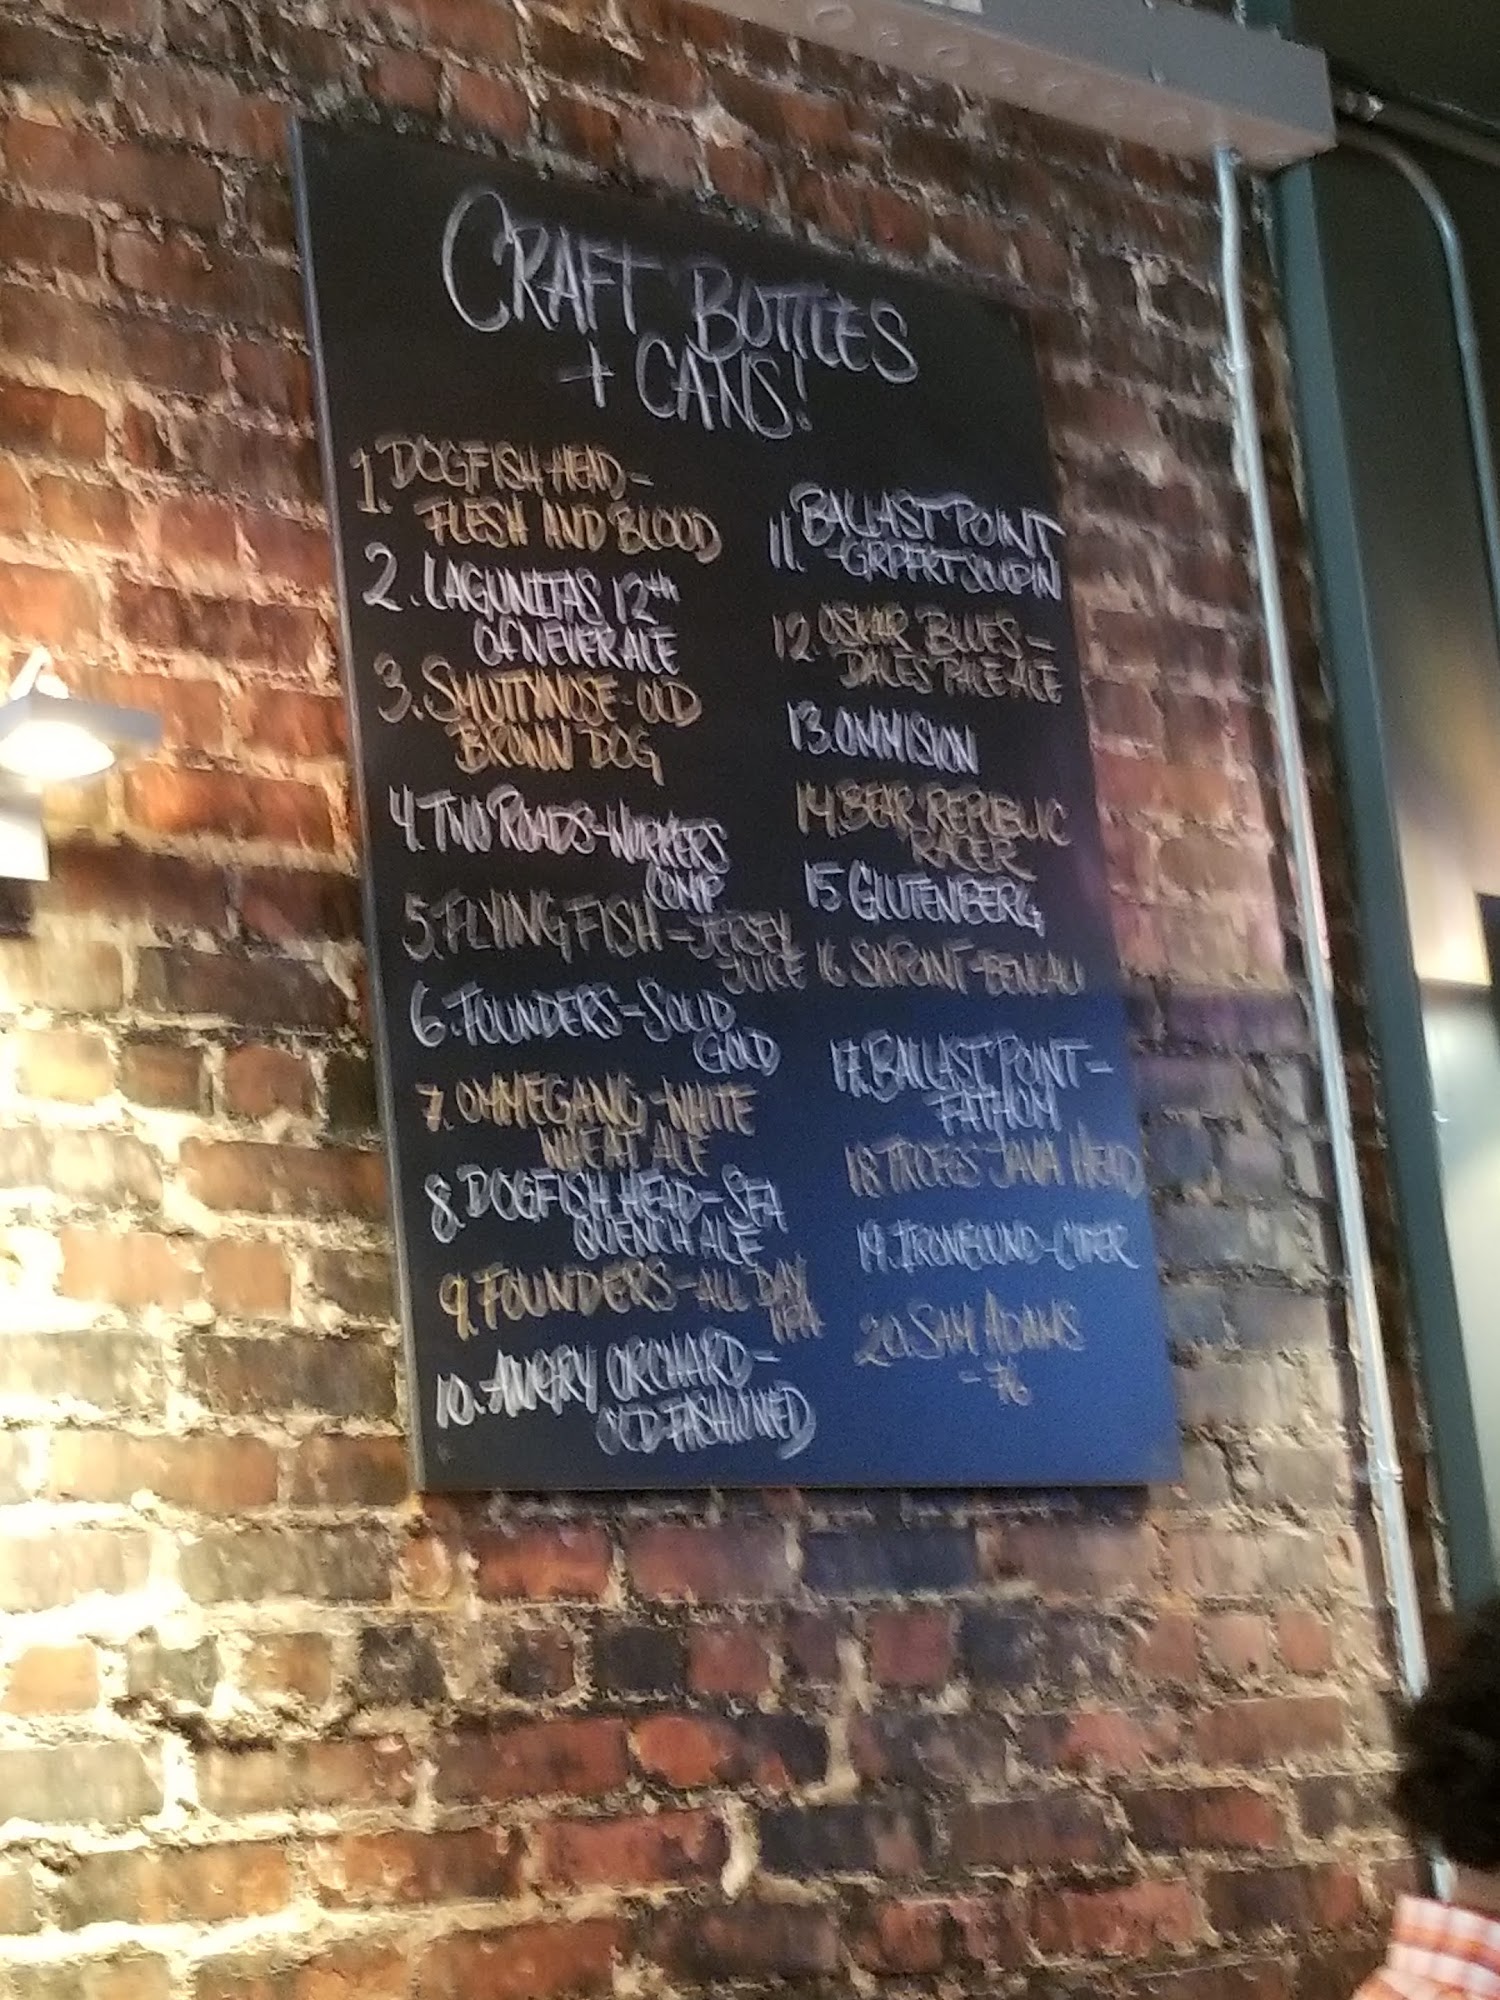 CRAFT BOTTLES
+ CANS!
1. DOGFISH HEAD-
FLESH AND BLOOD
2. LAGUNITAS 12th
OF NEVER ALE
3. SMUTTYNOSE-OLD
BROWN DOG
4. TWO ROADS-WORKERS
COMP
5. FLYING FISH-JERSEY
JUICE
6. FOUNDERS-SOLID
GOLD
7. OMMEGANG-WHITE
WHEAT ALE
8. DOGFISH HEAD-SEA
QUENCH ALE
9. FOUNDERS-ALL DAY
IPA
10. ANGRY ORCHARD-
OLD FASHIONED
11. BALLAST POINT
-GRPFRT SCULPIN
12. OSKAR BLUES-
DALES PALE ALE
13. OMMISION
14. BEAR REPUBLIC
RACER
15 GLUTENBERG
16 SIXPOINT-BENGALI
17. BALLAST POINT-
FATHOM
18 TROEGS JAVA HEAD
19. IRONBOUND-CIDER
20. SAM ADAMS
-76